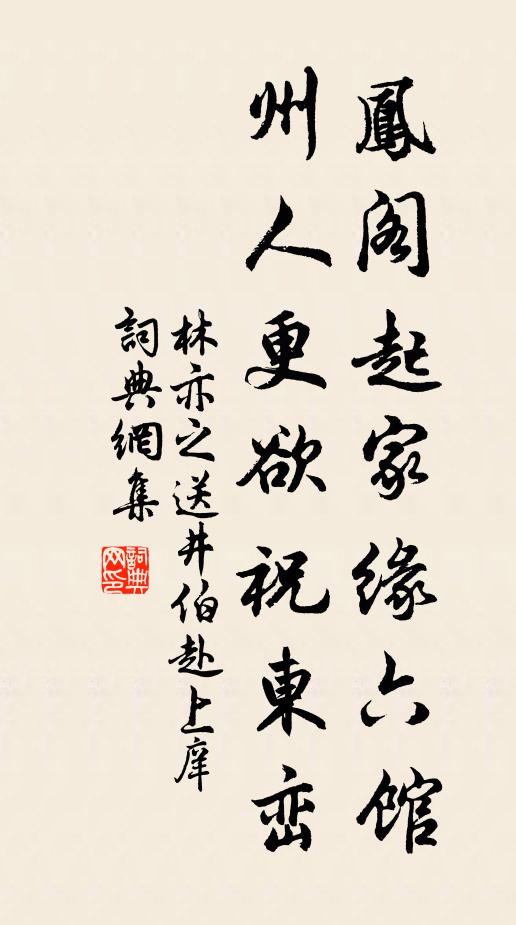 鳳阁起家緣六館
州人更欲祝東峦
林亦之送井伯赴上庠
詞典網集
詞典网印